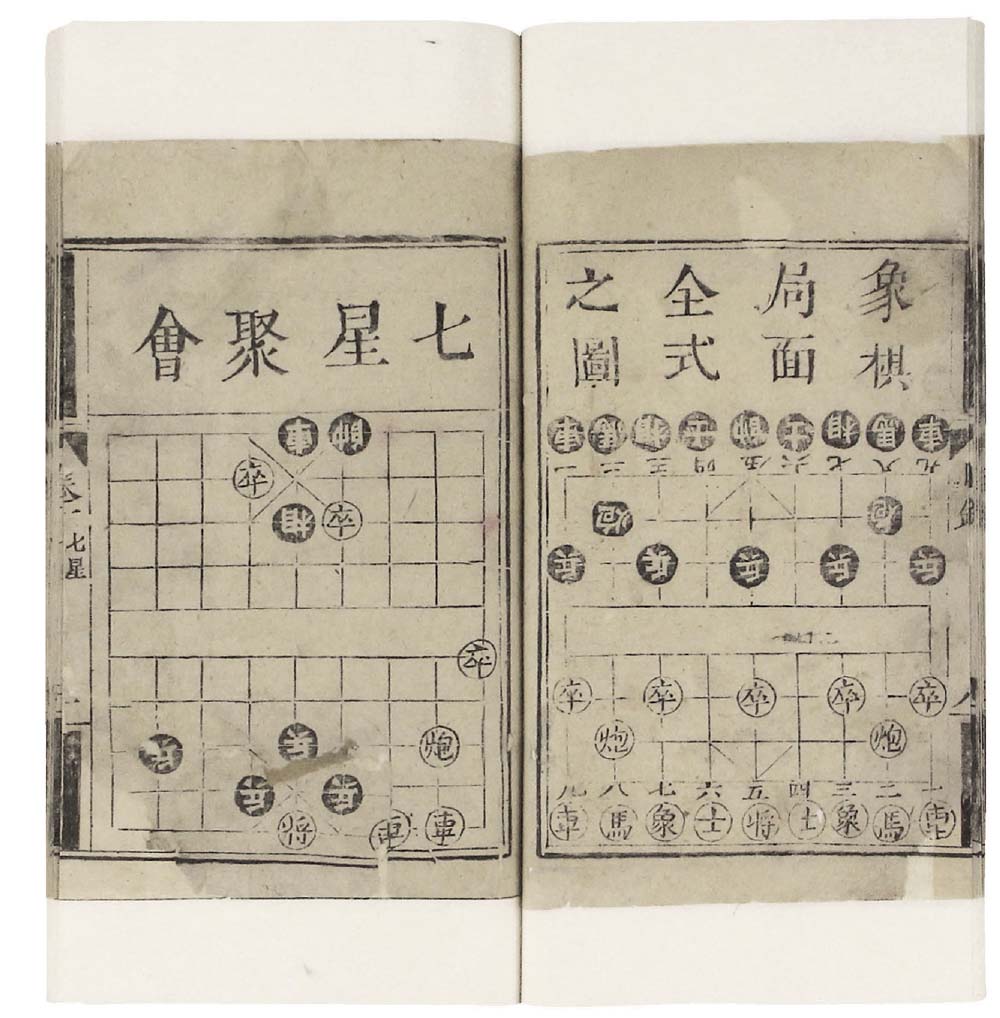 象棋
局面
全式
之圖
車馬相士帥士相馬車
九八七六五四三二一
炮炮
兵兵兵兵兵
卒卒卒卒卒
炮炮
一二三四五六七八九
車馬象士将士象馬車
七星聚會
帥車
卒
卒相
卒
炮兵兵
兵兵
車車将
卷一
七星
一